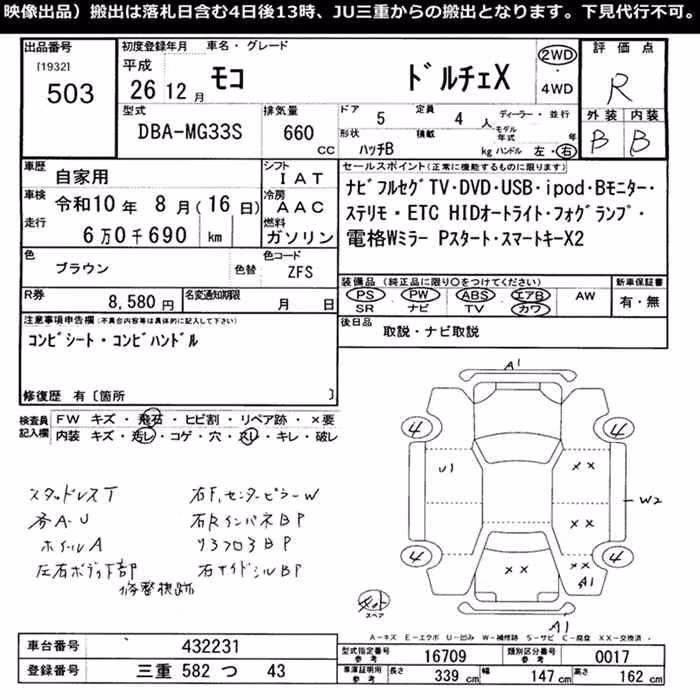 映像出品）搬出は落札日含む4日後13時、JU三重からの搬出となります。下見代行不可。
出品番号
[1932]
503
初度登録年月 車名・グレード
平成
26 12 月
モコ ドルチェX
2WD
・
4WD
評価点
R
外装 内装
B B
型式
DBA-MG33S
排気量
660 CC
ドア 5 定員 4 人
ディーラー・並行
形状 ハッチB
積載 kg
モデル年式 年
ハンドル 左・右
車歴 自家用
シフト IAT
車検 令和10年 8月(16日)
冷房 AAC
走行 6万0千690 km
燃料 ガソリン
色 ブラウン 色替
色コード ZFS
R券 8,580円
名変通知期限 月 日
セールスポイント(正常に機能するものに限ります)
ナビフルセグTV・DVD・USB・ipod・Bモニター・
ステリモ・ETC HIDオートライト・フォグランプ・
電格Wミラー Pスタート・スマートキーX2
装備品（純正品に限り○をつけてください）
PS ・ PW ・ ABS ・ エアB ・ AW
SR ナビ TV カワ
新車保証書
有・無
後日品 取説・ナビ取説
注意事項申告欄(不具合内容等は具体的に記入して下さい)
コンビシート・コンビハンドル
修復歴 有〔箇所 〕
検査員記入欄
FW キズ・飛石・ヒビ割・リペア跡・×要
内装 キズ・汚レ・コゲ・穴・スレ・キレ・破レ
スタッドレスT
各A-U
ホイールA
左右ボディ下部
修整痕跡
右F,センターピラーW
右RインパネBP
リヤフロアBP
右サイドシルBP
A1
4 4
U1 ××
W2
××
4 4
×× ××
A1
A1
スペア
A-キズ E-エクボ U-凹み W-補修跡 S-サビ C-腐食 XX-交換済・
車台番号 432231
登録番号 三重 582 つ 43
型式指定番号 参考 16709
類別区分番号 参考 0017
車庫証明用 参考 長さ 339 cm 幅 147 cm 高さ 162 cm